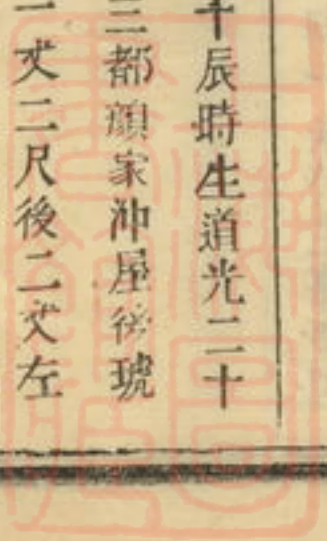 十辰時生道光二十
三都顔家沖屋後琥
一丈二尺後二丈左